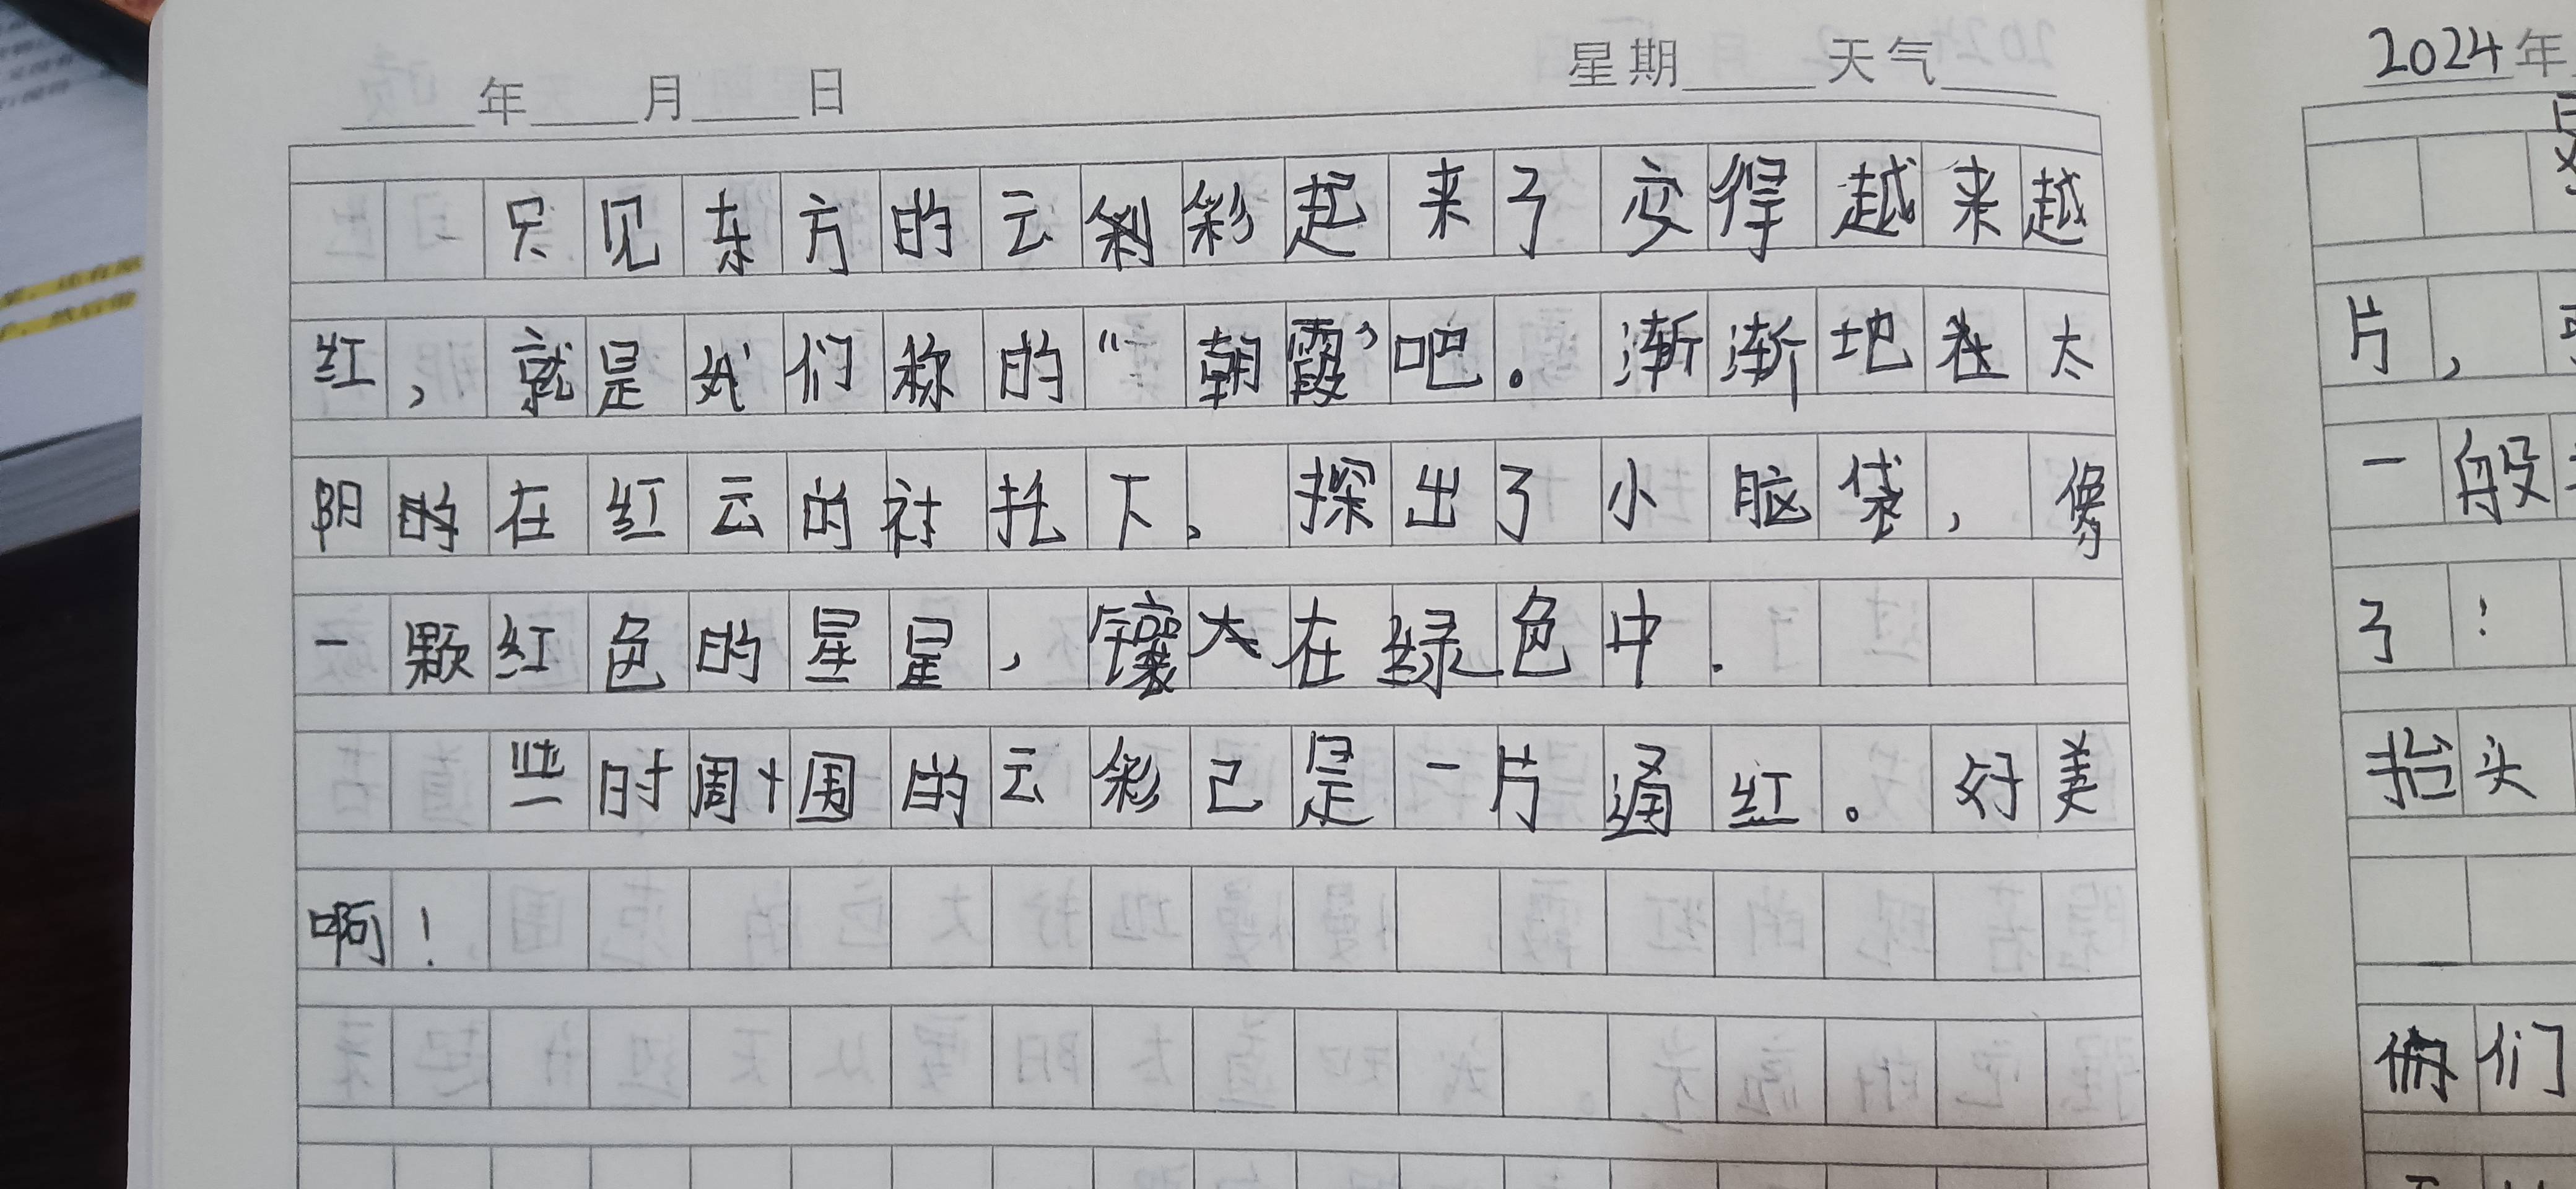 年 月 日 星期 天气
只见东方的云彩起来了变得越来越
红，就是我们称的“朝霞”吧。渐渐地太
阳在红云的衬托下，探出了小脑袋，像
一颗红色的星星，镶在绿色中.
些时周围的云彩已是一片通红。好美
啊！
2024年
片，
一般
了！
抬头
们